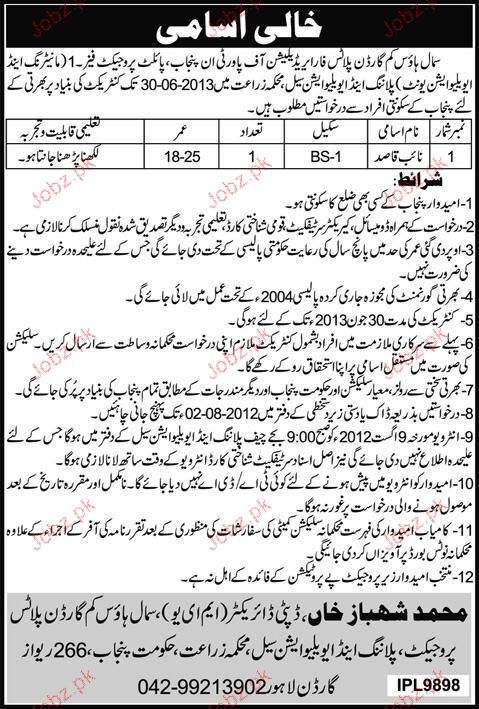 خالی اسامی
سمال ہاؤس کم گارڈن پلاٹس فار ایریڈیکیشن آف پاورٹی ان پنجاب، پائلٹ پروجیکٹ فیز۔1 (مانیٹرنگ اینڈ
ایویلیوایشن یونٹ) پلاننگ اینڈ ایویلیوایشن سیل، محکمہ زراعت میں 2013-06-30 تک کنٹریکٹ کی بنیاد پر بھرتی کے
لئے پنجاب کے سکونتی افراد سے درخواستیں مطلوب ہیں۔
نمبر شمار نام اسامی سکیل تعداد عمر تعلیمی قابلیت و تجربہ
1 نائب قاصد BS-1 1 18-25 لکھنا پڑھنا جانتا ہو۔
شرائط:
1- امیدوار پنجاب کے کسی بھی ضلع کا سکونتی ہو۔
2- درخواست کے ہمراہ ڈومیسائل، کیریکٹر سرٹیفکیٹ، قومی شناختی کارڈ، تعلیمی تجربہ و دیگر تصدیق شدہ نقول منسلک کرنا لازمی ہے۔
3- اوپر دی گئی عمر کی حد میں پانچ سال کی رعایت حکومتی پالیسی کے تحت دی جائے گی جس کے لئے علیحدہ درخواست دینے
کی ضرورت نہیں۔
4- بھرتی گورنمنٹ کی مجوزہ جاری کردہ پالیسی 2004ء کے تحت عمل میں لائی جائے گی۔
5- کنٹریکٹ کی مدت 30 جون 2013ء تک کے لئے ہوگی۔
6- پہلے سے سرکاری ملازمت میں افراد بشمول کنٹریکٹ ملازم اپنی درخواست محکمانہ وساطت سے ارسال کریں۔ سلیکشن
کی صورت میں مستقل اسامی پر اپنا استحقاق روکے رکھے گا۔
7- بھرتی سختی سے رولز، معیار سلیکشن اور حکومت پنجاب اور دیگر مندرجات کے مطابق تمام پنجاب کی بنیاد پر پُر کی جائے گی۔
8- درخواستیں بذریعہ ڈاک یا دستی زیر دستخطی کے دفتر میں 2012-08-02 تک پہنچ جانی چاہئیں۔
9- انٹرویو مورخہ 9 اگست 2012ء کو صبح 9:00 بجے چیف پلاننگ اینڈ ایویلیوایشن سیل کے دفتر میں ہوگا جس کے لئے
علیحدہ اطلاع نہیں دی جائے گی نیز اصل اسناد سرٹیفکیٹ شناختی کارڈ انٹرویو کے وقت ساتھ لانا لازمی ہوگا۔
10- امیدوار کو انٹرویو میں پیش ہونے کے لئے کوئی ٹی اے/ڈی اے نہیں دیا جائے گا۔ نامکمل اور مقررہ تاریخ کے بعد
موصول ہونے والی درخواست پر غور نہ ہوگا۔
11- کامیاب امیدوار کی فہرست محکمانہ سلیکشن کمیٹی کی سفارشات کی منظوری کے بعد تقرر نامہ کی آفر کے اجراء کے علاوہ
محکمانہ نوٹس بورڈ پر آویزاں کر دی جائیگی۔
12- منتخب امیدوار زیر پروجیکٹ پے پروٹیکشن کے فائدہ کے اہل نہ ہے۔
محمد شھباز خاں، ڈپٹی ڈائریکٹر (ایم ای یو)، سمال ہاؤس کم گارڈن پلاٹس
پروجیکٹ، پلاننگ اینڈ ایویلیوایشن سیل، محکمہ زراعت، حکومت پنجاب، 266 ریواز
گارڈن لاہور 042-99213902
IPL9898
Jobz.pk